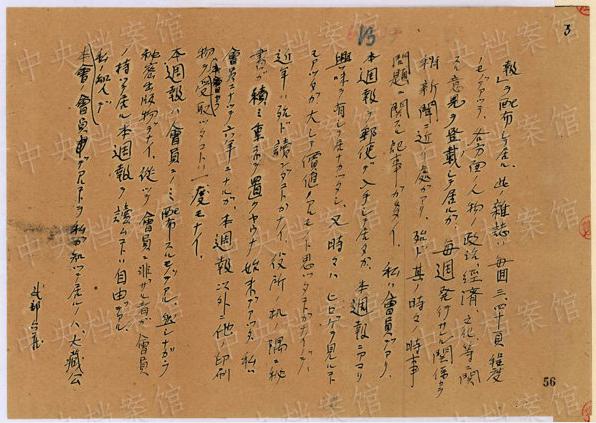 3
13
報」ヲ配布シテ居ル 此雑誌ハ毎回三、四十頁程度
ノモノデアッテ、各方面ノ人物ガ政治、経済、文化等ニ関
スル意見ヲ登載シテ居ルガ、毎週発行サレル関係カラ
新聞ニ近イ処ガアリ、殆ド其ノ時々ノ時事
問題ニ関スル記事ガ多イ。私ハ会員デアリ、
本週報ヲ郵便デ入手シテ居タガ、本週報ニアマリ
興味ヲ有シテ居ナカッタシ、又時々ヒロゲテ見ルト
大シテ価値ノアルモノト思ッタコトガナイノデ、
近年ハ殆ド読ンダコトガナイ。役所ノ机ノ隅ニ
積ミ重ネテ置クヤウナ始末デアッタ。私ハ
会員ニナッテ六年ニナルガ、本週報以外ニ他ノ印刷
物ヲ受取ッタコトハ一度モナイ。
本週報ハ会員ニノミ配布スルモノデアル。然シナガラ
秘密出版物デナイ。従ッテ会員ニ非ザル者ガ会員
ノ持ッテ居ル本週報ヲ読ムコトハ自由デアル。
私ノ知人デ
本会ノ会員デアルコトヲ私ガ知ッテ居ルノハ、大蔵公
56
中央档案馆